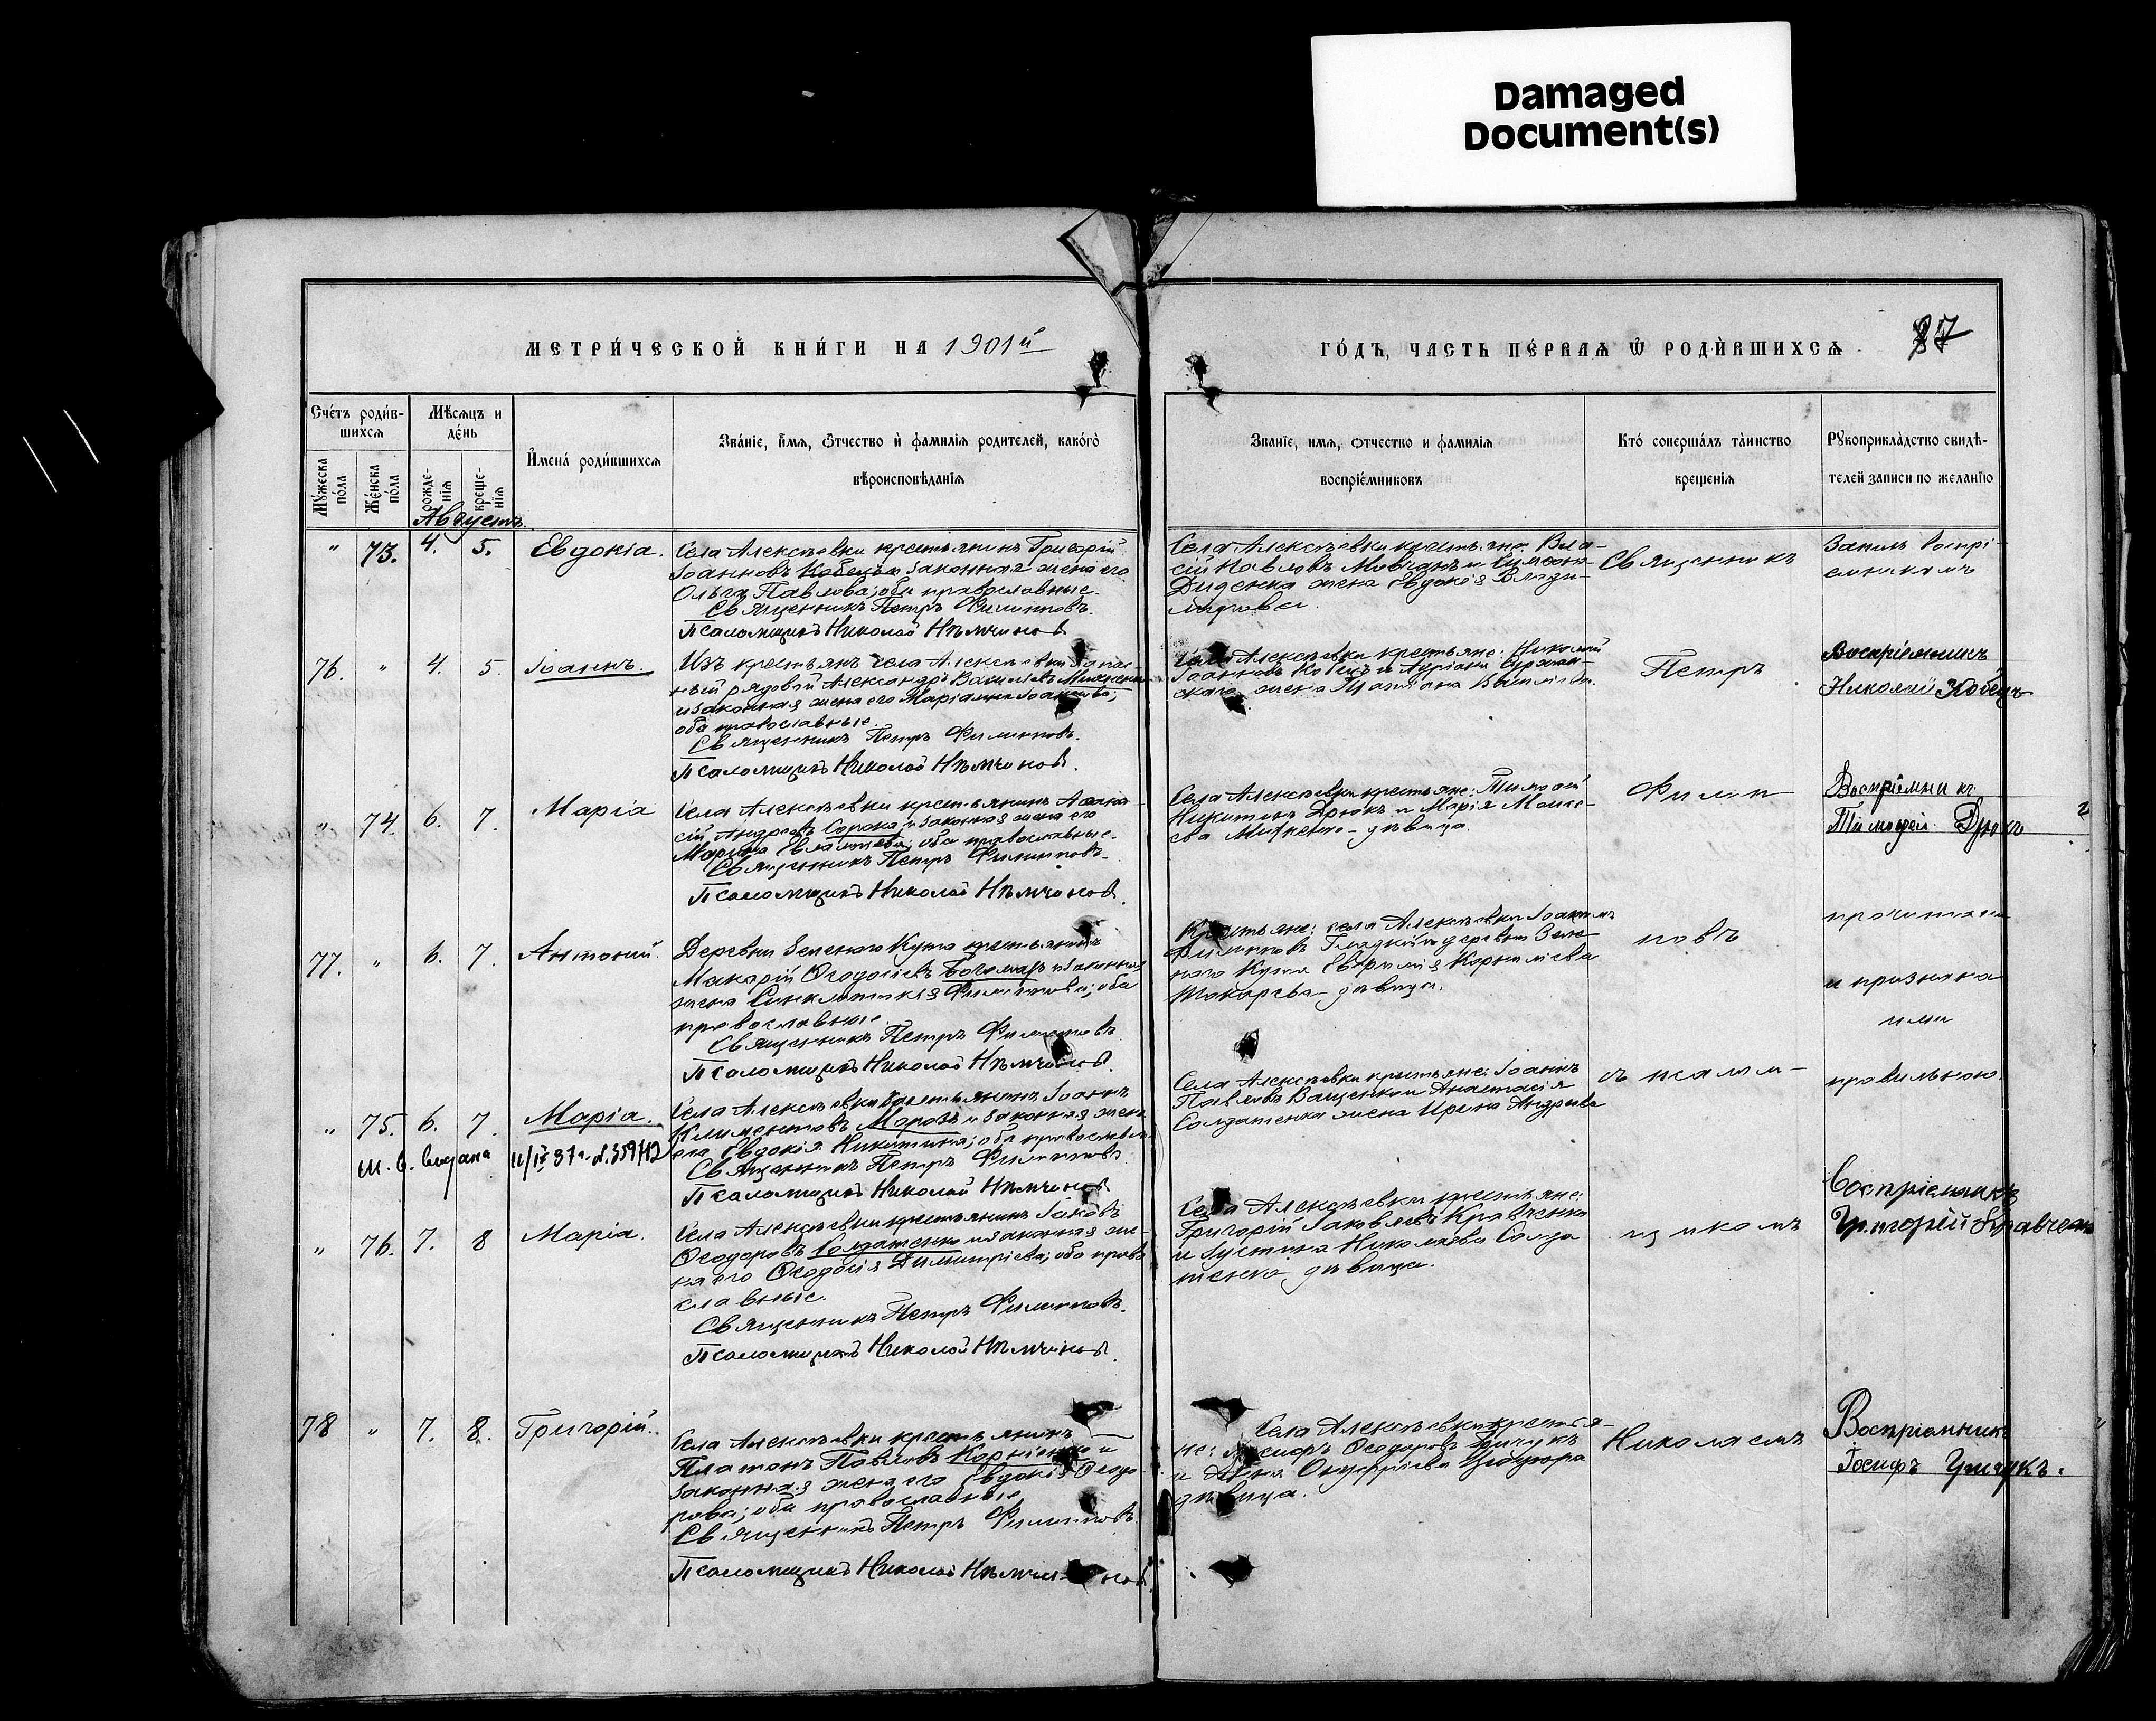 Damaged
Document(s)
МЕТРИ́ЧЕСКОЙ КНИ́ГИ НА 1901й
ГО́ДЪ, ЧАСТЬ ПЕ́РВАЯ Ѡ҆ РОДИ́ВШИХСЯ
87
Сче́тъ роди́в-
шихся
Мꙋ́жеска по́ла
Же́нска по́ла
Мѣ́сяцъ и
де́нь
рожде-
нія
креще-
нія
И҆мена́ роди́вшихся
Зва́ніе, и҆́мя, ѻ҆́тчество и҆ фамилія родителей, како́гѡ
вѣроисповѣданія
Званіе, имя, отчество и фамилія
воспріе́мниковъ
Кто́ соверша́лъ та́инство
крещенія
Рꙋкоприкла́дство свидѣ́-
телей записи по желанію
Августъ
" 73. 4. 5. Евдокія.
Села Алексѣевки крестьянинъ Григорій
Іоанновъ и законная жена его
Ольга Павлова; оба православные.
Священникъ Петръ Филипповъ.
Псаломщикъ Николай Нѣмчинов
Села Алексѣевки крестьяне: Вла-
сій Павловъ Мовчанъ и Симеона
Диденка жена Евдокія Влади-
мірова.
Священникъ
Запись воспрі-
емникамъ
76. " 4. 5. Іоаннъ.
Изъ крестьянъ села Алексѣевки запас-
ный рядовой Александръ Васильевъ
и законная жена его Маріамна Іоаннова;
оба православные.
Священникъ Петръ Филипповъ.
Псаломщикъ Николай Нѣмчинов.
Села Алексѣевки крестьяне: Николай
Іоанновъ Кобецъ и
жена
Петръ
Воспріемникъ
Николай Кобецъ
" 74. 6. 7. Марія
Села Алексѣевки крестьянинъ Аѳана-
сій Андреевъ Сорока и законная жена его
Марина Евлампіева; оба православные.
Священникъ Петръ Филипповъ.
Псаломщикъ Николай Нѣмчинов.
Села Алексѣевки крестьяне: Тимоѳей
Никитинъ Дрюкъ и Марія Моисе-
ева Михненко-дѣвица.
Филип
Воспріемникъ
Тимофей Дрюкъ
77. " 6. 7. Антоній.
Деревни Зеленаго Кута крестьянинъ
Макарій Ѳеодосіевъ Богомазъ и законная
жена Синклитикія Филиппова; оба
православные.
Священникъ Петръ Филипповъ.
Псаломщикъ Николай Нѣмчинов.
Крестьяне: села Алексѣевки Іоакимъ
Филипповъ Гладкій и деревни Зеле-
наго Кута Евфимія Корниліева
Токарева-дѣвица.
повъ
прочитана
и признана
ими
75. 6. 7. Марія.
Села Алексѣевки крестьянинъ Іоаннъ
Климентовъ Морозъ и законная жена
его Евдокія Никитина; оба православные
Священникъ Петръ Филипповъ
Псаломщикъ Николай Нѣмчинов
м. в. выдана 11/IV 37 г. №359712
Села Алексѣевки крестьяне: Іоаннъ
Павловъ Ващенко и Анастасія
Солдатенка жена Ирина Андреева
съ псалом-
правильною.
" 76. 7. 8 Марія.
Села Алексѣевки крестьянинъ Іаковъ
Ѳеодоровъ Солдатенко и законная же-
на его Ѳеодосія Димитріева; оба право-
славные.
Священникъ Петръ Филипповъ.
Псаломщикъ Николай Нѣмчинов.
Села Алексѣевки крестьяне:
Григорій Іаковлевъ Кравченко
и Іустина Николаева Солда
тенко, дѣвица.
щикомъ
Воспріемникъ
Григорій Кравченко
78 " 7. 8. Григорій.
Села Алексѣевки крестьянинъ
Платонъ Павловъ Корніенко и
законная жена его Евдокія Ѳеодо-
рова; оба православные
Священникъ Петръ Филипповъ.
Псаломщикъ Николай Нѣмчи-нов.
Села Алексѣевки крестья-
не: Іосифъ Ѳеодоровъ
и Анна Онуфріева
дѣвица.
Николаемъ
Воспріемникъ
Іосифъ